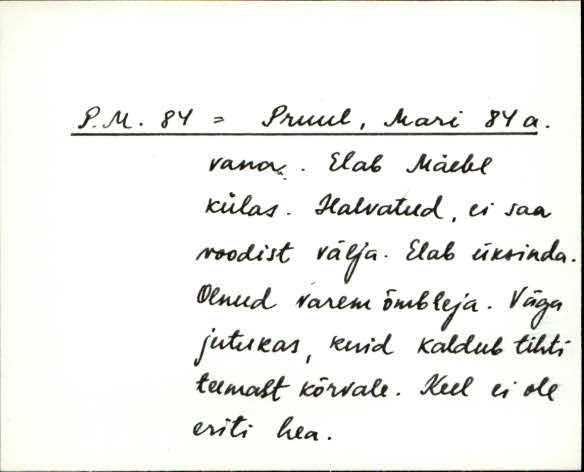 P.M. 84 = Pruul, Mari 84 a.
vana. Elab Mäebe
külas. Halvatud, ei saa
voodist välja. Elab üksinda.
Olnud varem õmbleja. Väga
jutukas, kuid kaldub tihti
teemast kõrvale. Keel ei ole
eriti hea.